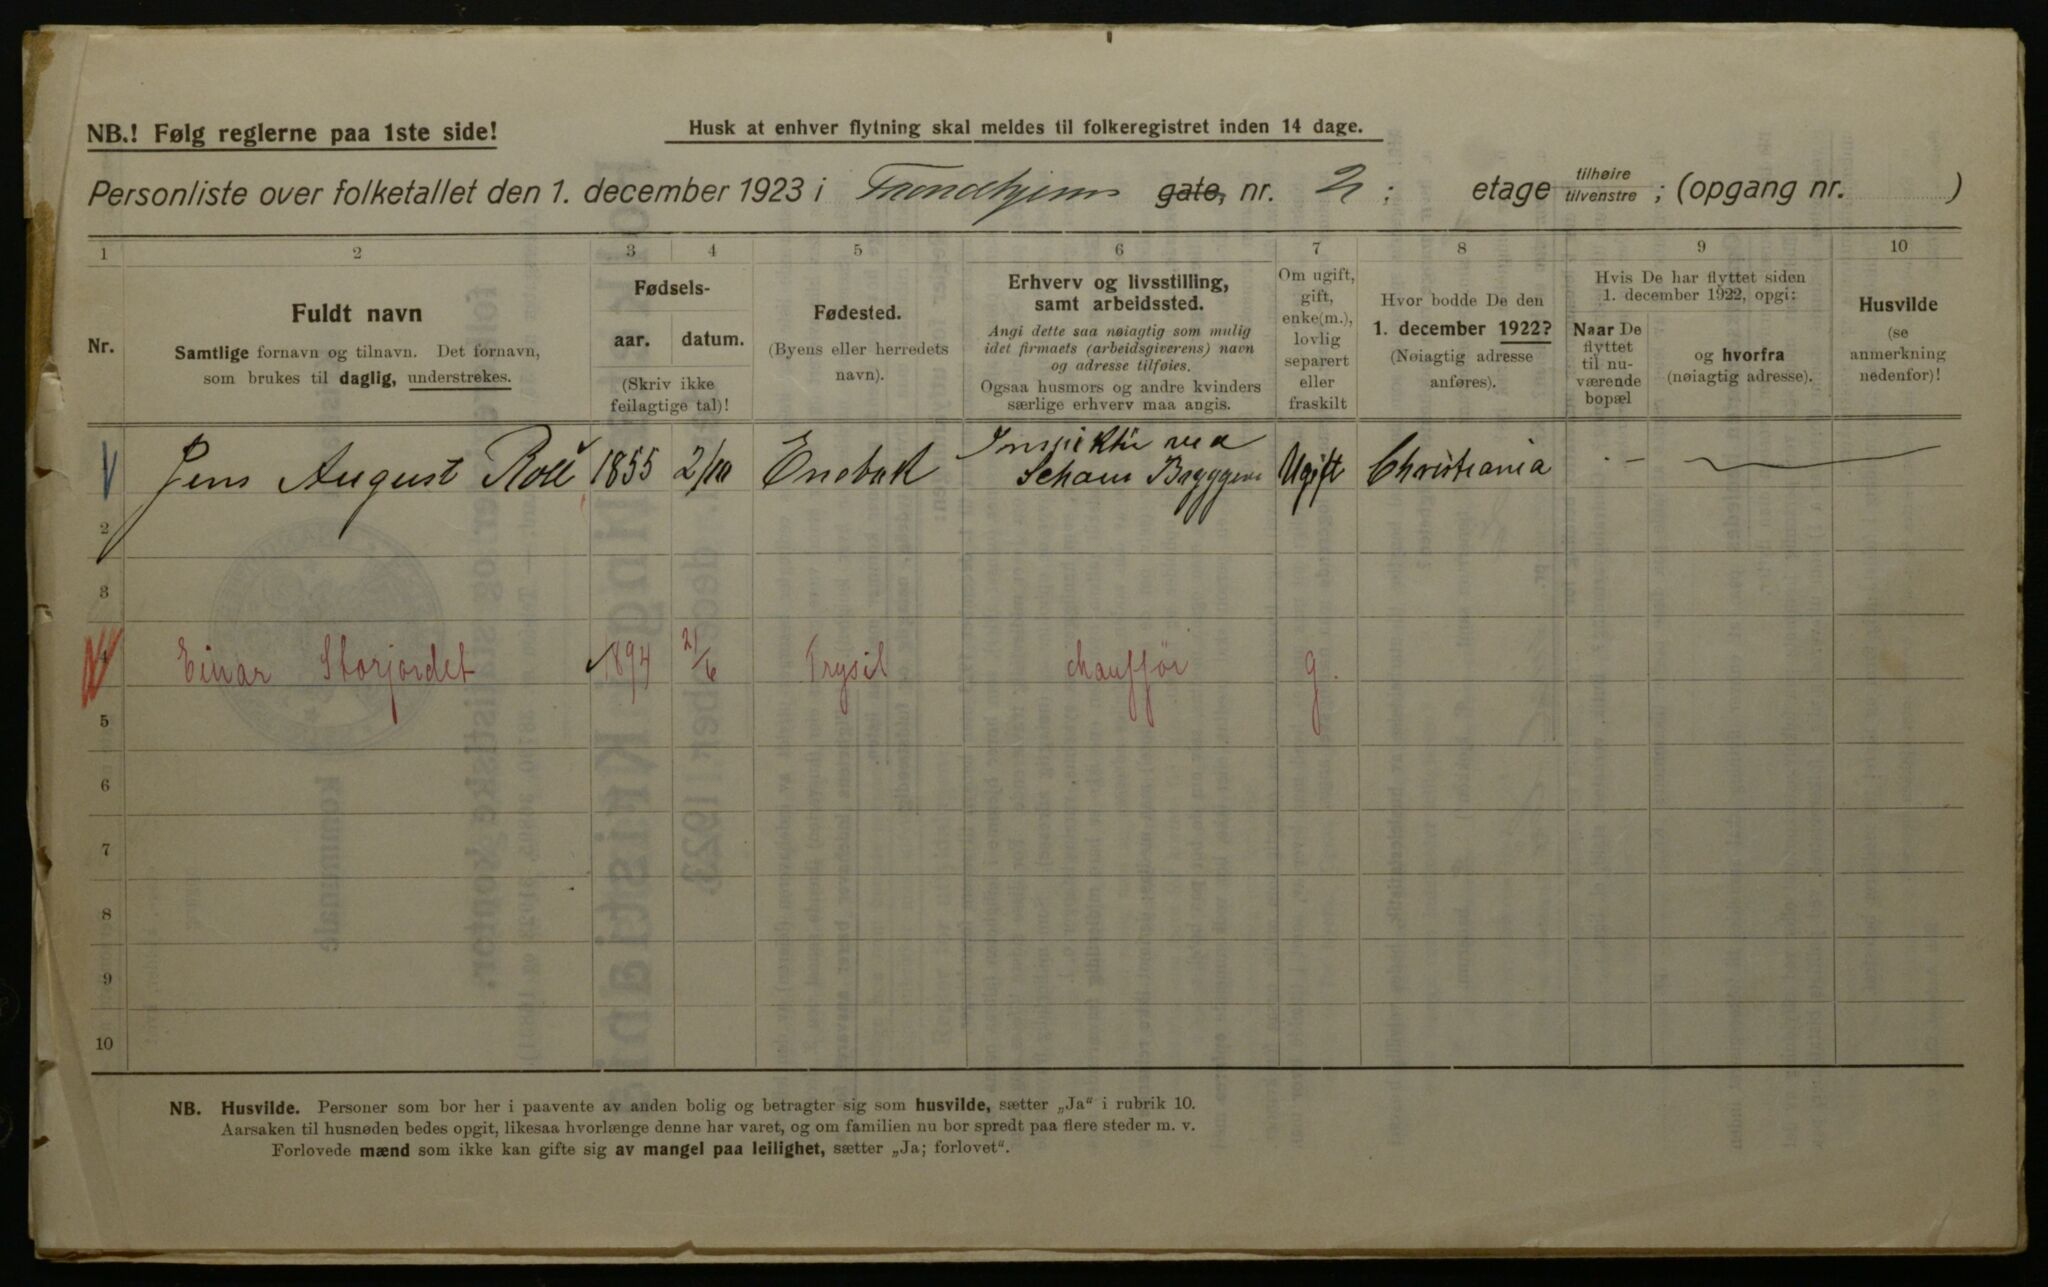 NB.! Følg reglerne paa 1ste side!
Husk at enhver flytning skal meldes til folkeregistret inden 14 dage.
Personliste over folketallet den 1. december 1923 i Trondhjems gate, nr. 2 ; etage tilhøire tilvenstre ; (opgang nr. )
1 2 3 4 5 6 7 8 9 10
Nr.
Fuldt navn
Samtlige fornavn og tilnavn. Det fornavn,
som brukes til daglig, understrekes.
Fødsels-
aar. datum.
(Skriv ikke
feilagtige tal)!
Fødested.
(Byens eller herredets
navn).
Erhverv og livsstilling,
samt arbeidssted.
Angi dette saa nøiagtig som mulig
idet firmaets (arbeidsgiverens) navn
og adresse tilføies.
Ogsaa husmors og andre kvinders
særlige erhverv maa angis.
Om ugift,
gift,
enke(m.),
lovlig
separert
eller
fraskilt
Hvor bodde De den
1. december 1922?
(Nøiagtig adresse
anføres).
Hvis De har flyttet siden
1. december 1922, opgi:
Naar De
flyttet
til nu-
værende
bopæl
og hvorfra
(nøiagtig adresse).
Husvilde
(se
anmerkning
nedenfor)!
Jens August 1855 2/10 Enebak Inspektør ved Schous Bryggeri Ugift Christiania
2
3
Einar Storjordet 1894 21/6 Trysil chauffør g.
5
6
7
8
9
10
NB. Husvilde. Personer som bor her i paavente av anden bolig og betragter sig som husvilde, sætter „Ja" i rubrik 10.
Aarsaken til husnøden bedes opgit, likesaa hvorlænge denne har varet, og om familien nu bor spredt paa flere steder m. v.
Forlovede mænd som ikke kan gifte sig av mangel paa leilighet, sætter „Ja; forlovet".